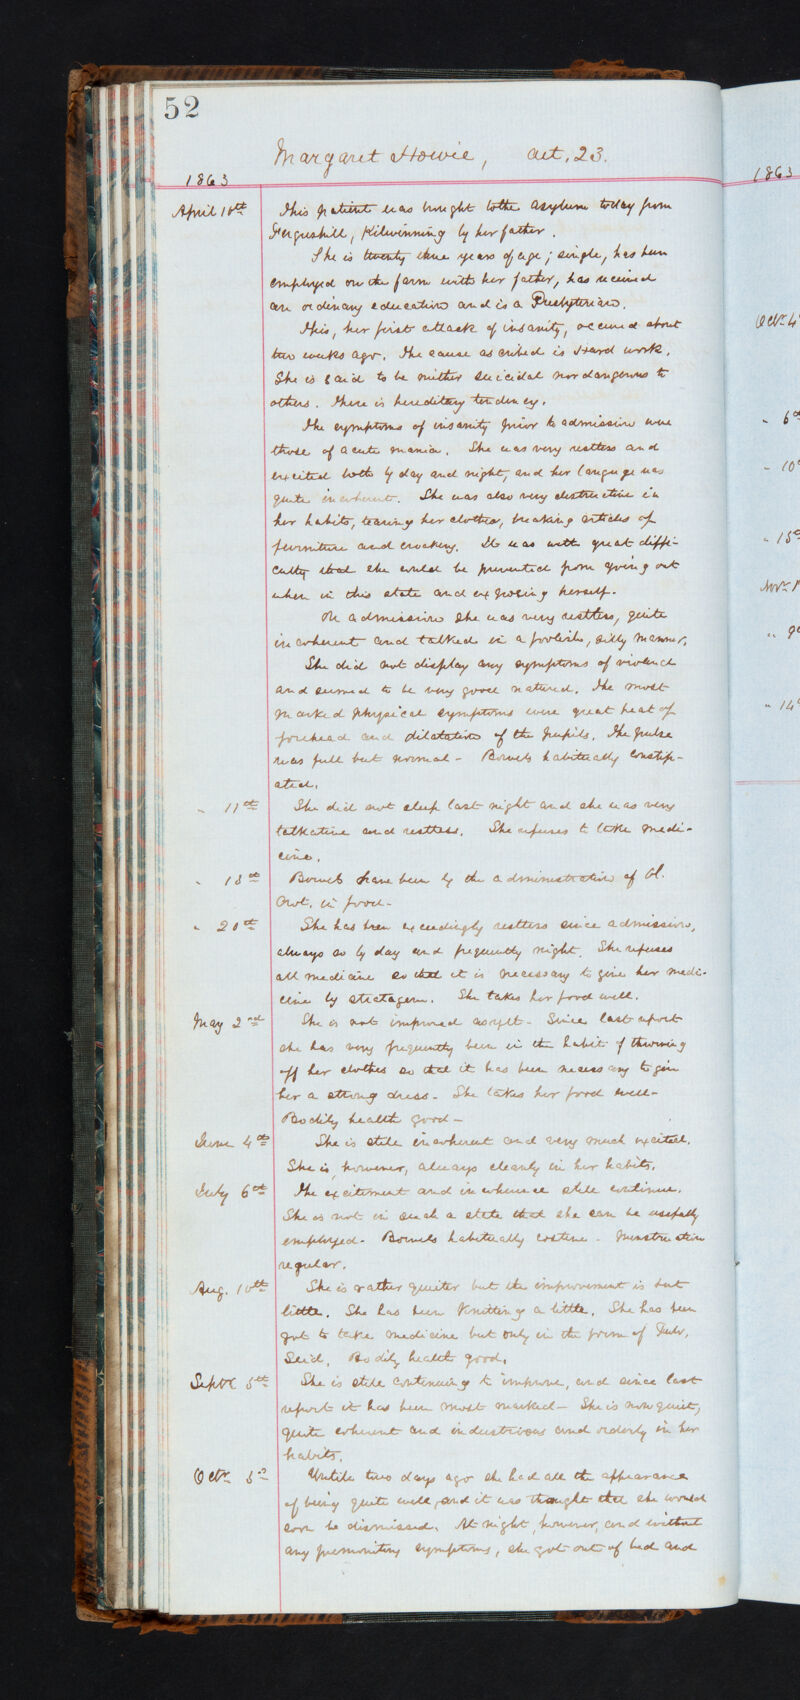 52
Margaret Howie, aet. 23.
1863
April 10th This patient was brought to the asylum today from
Fergushill, Kilwinning by her father.
She is twenty three years of age; single, has been
employed on the farm with her father, has received
an ordinary education and is a Presbyterian.
This, her first attack of insanity, occurred about
two weeks ago. The cause ascribed is Hard work.
She is said to be neither suicidal nor dangerous to
others. There is hereditary tendency.
The symptoms of insanity prior to admission were
those of acute mania. She was very restless and
excited both by day and night, and her language was
quite incoherent. She was also very destructive in
her habits, tearing her clothes, breaking articles of
furniture and crockery. It was with great diffi-
culty that she could be prevented from going out
when in this state and exposing herself.
On admission she was very restless, quite
incoherent and talked in a foolish, silly manner.
She did not display any symptoms of violence
and seemed to be very good natured. The most
marked physical symptoms were great heat of
forehead and dilatation of the pupils. The pulse
was full but normal - Bowels habitually constip-
ated.
" 11th She did not sleep last night and she was very
talkative and restless. She refuses to take medi-
cine.
" 13th Bowels have been by the administration of Ol.
Crot. in food -
" 20th She has been exceedingly restless since admission,
always so by day and frequently night. She refuses
all medicine so that it is necessary to give her medi-
cine by stratagem. She takes her food well.
May 2nd She is not improved as yet - Since last report
she has very frequently been in the habit of throwing
off her clothes so that it has been necessary to give
her a strong dress - She takes her food well -
Bodily health good -
June 4th She is still incoherent and very much excited.
She is, however, always cleanly in her habits.
July 6th The excitement and incoherence still continue.
She is not in such a state that she can be usefully
employed - Bowels habitually costive - Menstruation
regular.
Aug. 10th She is rather quieter but the improvement is but
little. She has been knitting a little. She has been
got to take medicine but only in the form of Pulv.
Seid. Bodily health good.
Septr 5th She is still continuing to improve, and since last
report it has been most marked - She is now quiet,
quite coherent and industrious and orderly in her
habits.
Octr 3d Until two days ago she had all the appearance
of being quite well, and it was thought that she would
soon be dismissed. At night, however, and without
any premonitory symptoms, she got out of bed and
1863
Octr 4
" 6
" 10
" 15
Novr 1
" 9
" 14